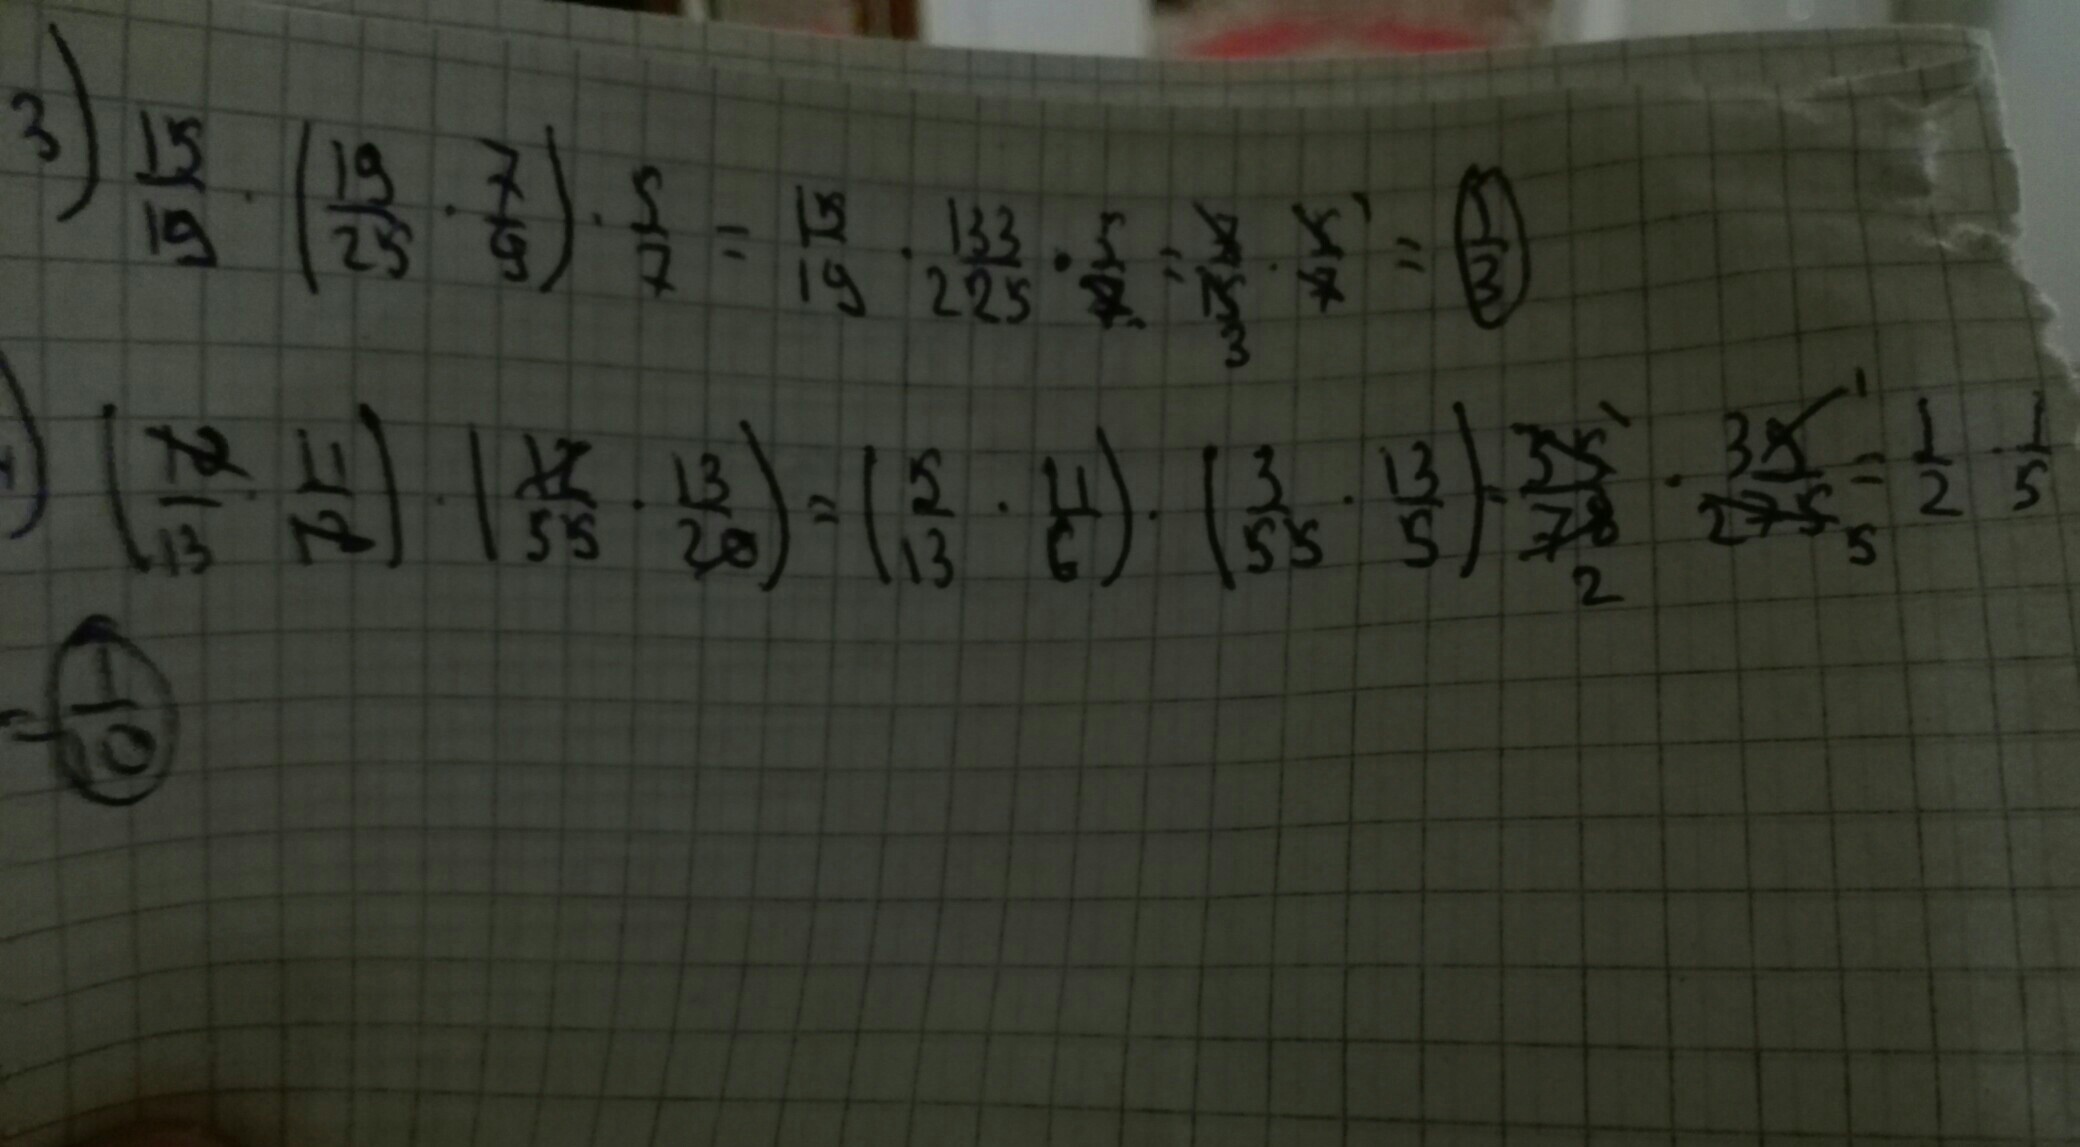 3) 15/19 · (19/25 · 7/9) · 5/7 = 15/19 · 133/225 · 5/7 = 7/15 3 · 5/7 1 = 1/3
) (10/13 · 11/12) · (12/55 · 13/20) = (5/13 · 11/6) · (3/55 · 13/5) = 55/78 1 2 · 39/275 1 5 = 1/2 · 1/5
= 1/10